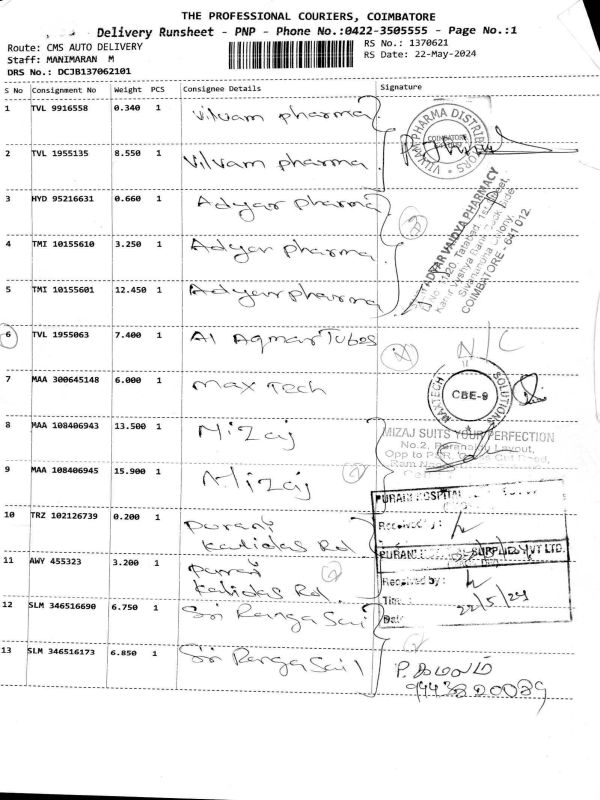 THE PROFESSIONAL COURIERS, COIMBATORE
Delivery Runsheet - PNP - Phone No.:0422-3505555 - Page No.:1
Route: CMS AUTO DELIVERY
Staff: MANIMARAN M
DRS No.: DCJB137062101
RS No.: 1370621
RS Date: 22-May-2024
S No Consignment No Weight PCS Consignee Details Signature
1 TVL 9916558 0.340 1 Vilvam pharma
VILVAM PHARMA DISTRIBUTORS
COIMBATORE
2 TVL 1955135 8.550 1 Vilvam pharma
3 HYD 95216631 0.660 1 Adyar pharma
4 TMI 10155610 3.250 1 Adyar pharma
ADYAR VAIDYA PHARMACY
Tatabad, 1st Street,
Karur Vysya Bank Back Side
Sivananda Colony,
COIMBATORE - 641 012
5 TMI 10155601 12.450 1 Adyar pharma
6 TVL 1955063 7.400 1 Al Aqmar Tubes
N/C
7 MAA 300645148 6.000 1 Max Tech
MALTECH SOLUTIONS
CBE-9
8 MAA 108406943 13.500 1 Mizaj
MIZAJ SUITS YOUR PERFECTION
No.2,
Layout,
Opp to
9 MAA 108406945 15.900 1 Mizaj
10 TRZ 102126739 0.200 1 Purani
Kalidas Rd
PURANI HOSPITAL
Received by:
11 AWY 455323 3.200 1 Purani
Kalidas Rd
PURANI SUPPLIES PVT LTD.
Received by:
Time
Date 22/5/24
12 SLM 346516690 6.750 1 Sri Ranga Sai
13 SLM 346516173 6.850 1 Sri Ranga Sai
P. கமலம்